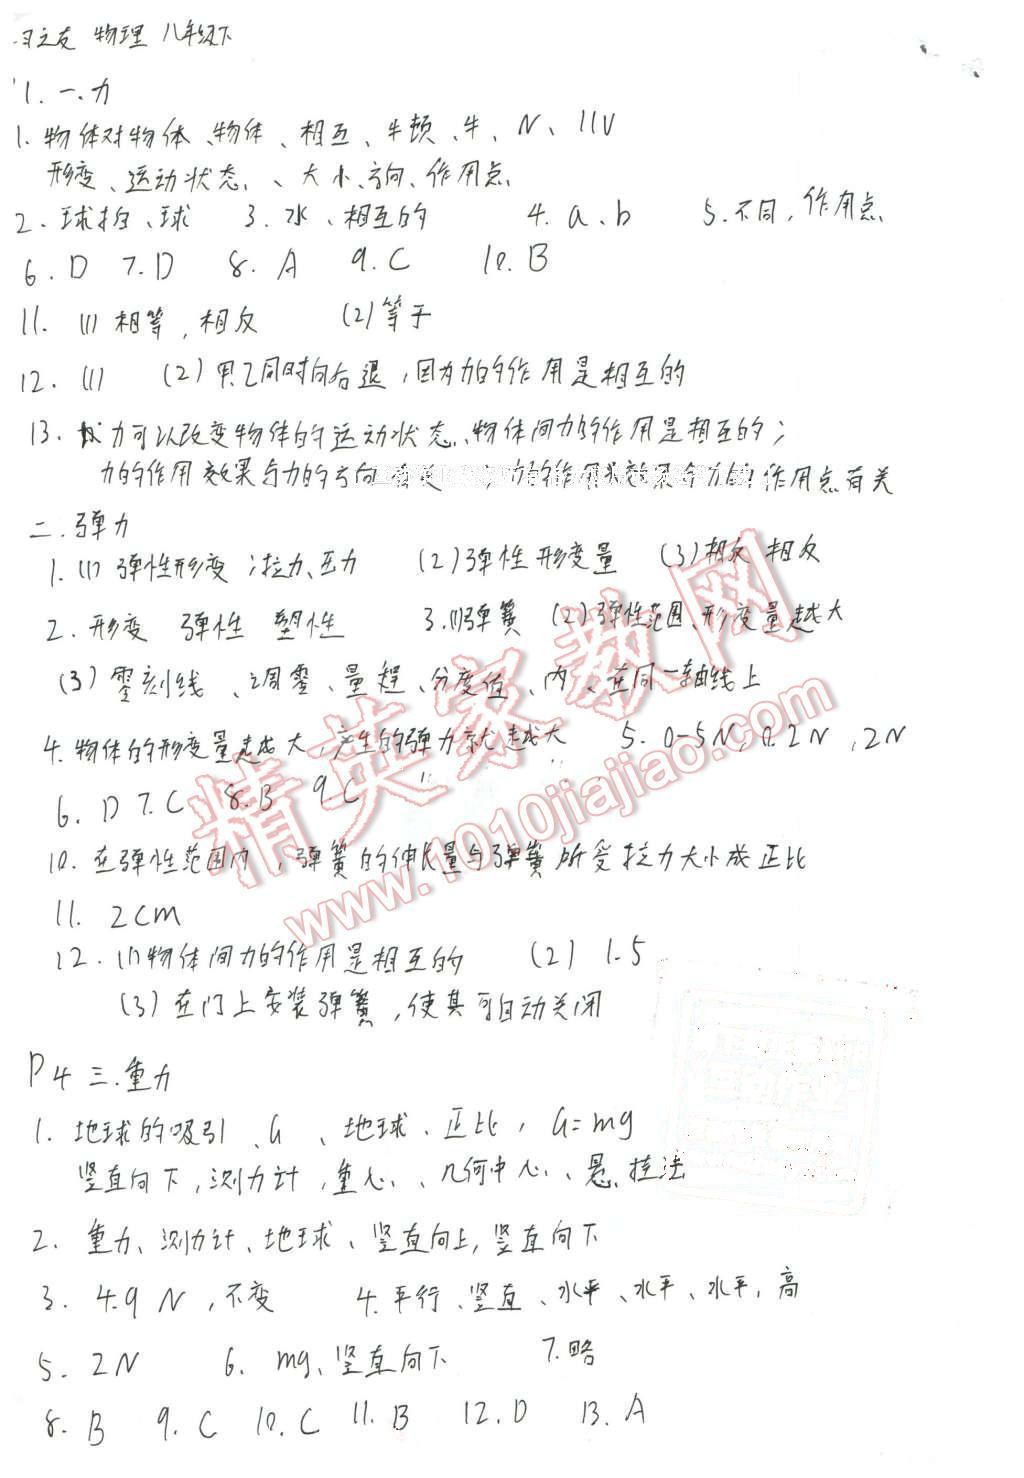 习之友 物理 八年级下
1. 一、力
1. 物体对物体、物体、相互、牛顿、牛、N、
形变、运动状态、、大小、方向、作用点、
2. 球拍、球 3. 水、相互的 4. a、b 5. 不同, 作用点、
6. D 7. D 8. A 9. C 10. B
11. (1) 相等, 相反 (2) 等于
12. (1) (2) 甲乙同时向后退, 因为力的作用是相互的
13. 力可以改变物体的运动状态、物体间力的作用是相互的;
力的作用效果与力的方向有关, 力的作用效果与力的作用点有关
二. 弹力
1. (1) 弹性形变; 拉力、压力 (2) 弹性形变量 (3) 相反 相反
2. 形变 弹性 塑性 3. (1) 弹簧 (2) 弹性范围、形变量越大
(3) 零刻线、调零、量程、分度值、内、在同一轴线上
4. 物体的形变量越大, 产生的弹力就越大 5. 0-5N, 0.2N, 2N
6. D 7. C 8. B 9. C
10. 在弹性范围内, 弹簧的伸长量与弹簧所受拉力大小成正比
11. 2cm
12. (1) 物体间力的作用是相互的 (2) 1.5
(3) 在门上安装弹簧, 使其可自动关闭
P4 三. 重力
1. 地球的吸引、G、地球、正比, G=mg
竖直向下, 测力计, 重心、、几何中心、、悬挂法
2. 重力、测力计、地球、竖直向上, 竖直向下
3. 4.9 N, 不变 4. 平行、竖直、水平、水平、水平, 高
5. 2N 6. mg、竖直向下 7. 略
8. B 9. C 10. C 11. B 12. D 13. A
精英家教网
www.1010jiajiao.com